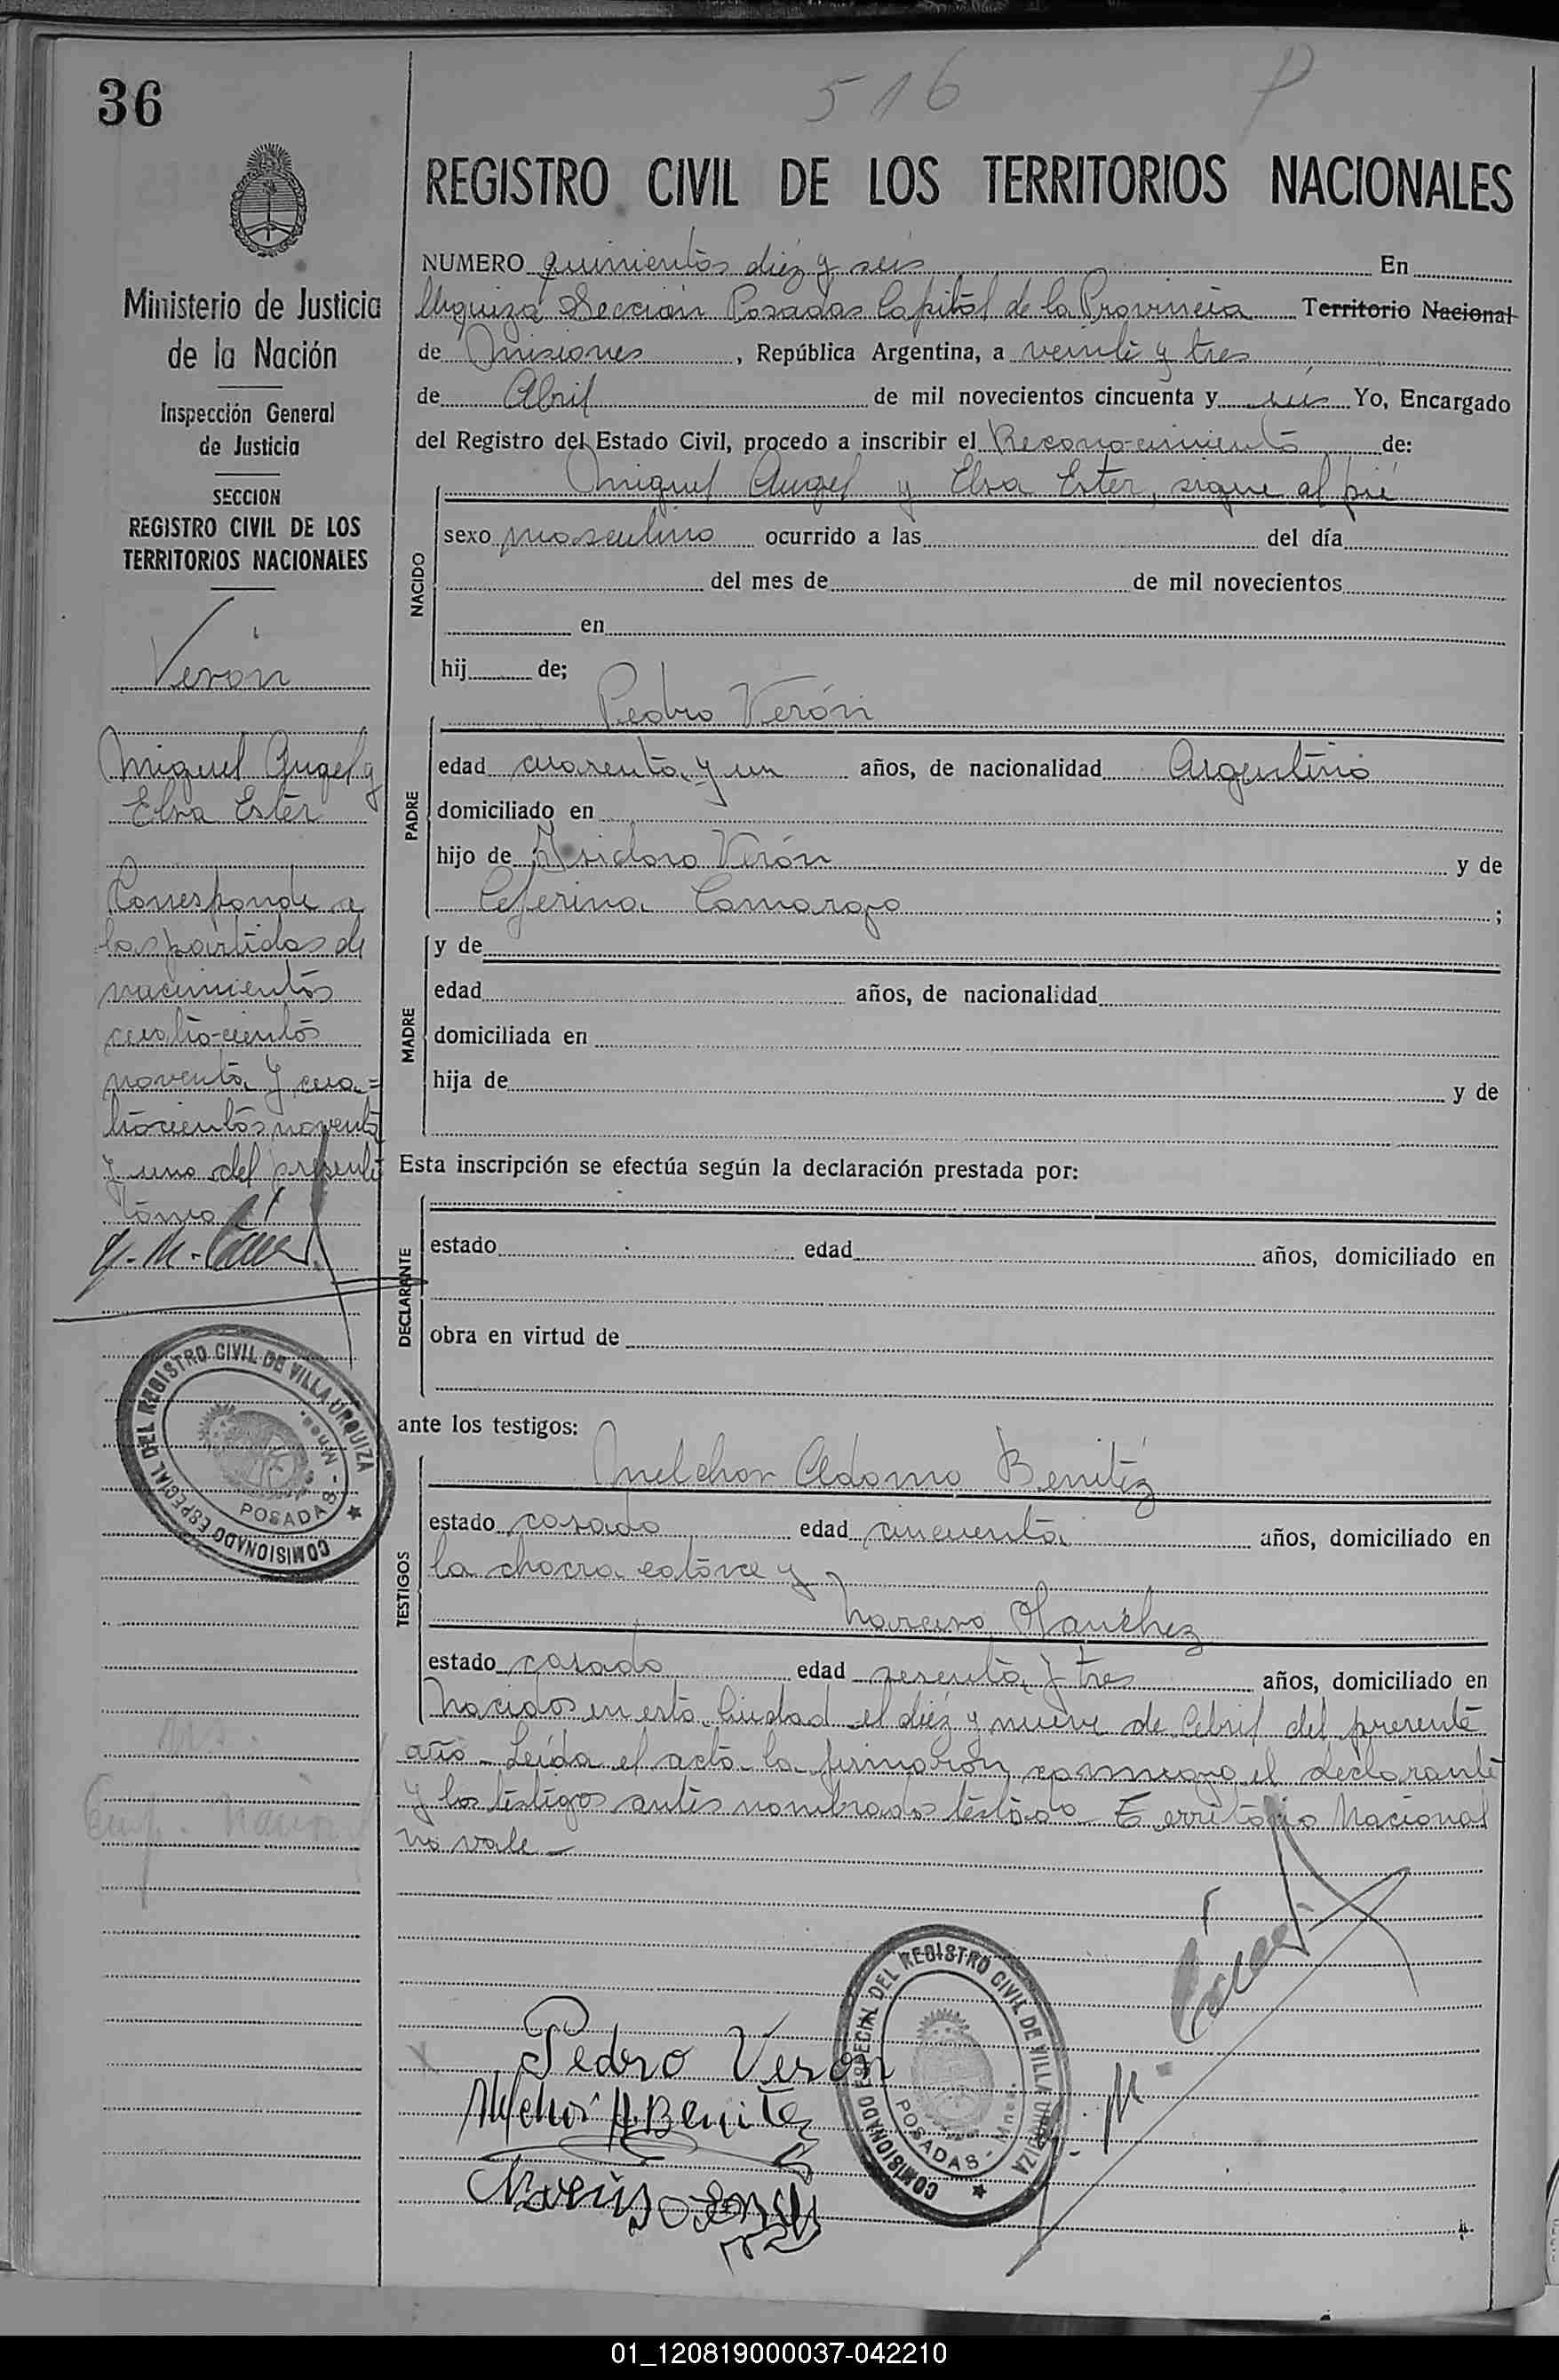 36
516
P
REGISTRO CIVIL DE LOS TERRITORIOS NACIONALES
Ministerio de Justicia
de la Nación
Inspección General
de Justicia
SECCION
REGISTRO CIVIL DE LOS
TERRITORIOS NACIONALES
Verón
Miguel Angel y
Elva Ester
Corresponde a
las partidas de
nacimientos
cuatro-cientos
noventa y cua=
trocientos noventa
y uno del presente
tomo
COMISIONADO ESPECIAL DEL REGISTRO CIVIL DE VILLA URQUIZA
POSADAS - Mnes.
NUMERO quinientos diéz y seis En
Urquiza Sección Posadas Capital de la Provincia Territorio Nacional
de Misiones, República Argentina, a veinte y tres
de Abril de mil novecientos cincuenta y seis Yo, Encargado
del Registro del Estado Civil, procedo a inscribir el Recono-cimiento de:
Miguel Angel y Elva Ester, sigue al pié
NACIDO
sexo masculino ocurrido a las del día
del mes de de mil novecientos
en
hij de;
PADRE
Pedro Verón
edad cuarenta y un años, de nacionalidad Argentino
domiciliado en
hijo de Isidoro Verón y de
Ceferina Camargo ;
MADRE
y de
edad años, de nacionalidad
domiciliada en
hija de y de
Esta inscripción se efectúa según la declaración prestada por:
DECLARANTE
estado edad años, domiciliado en
obra en virtud de
ante los testigos:
TESTIGOS
Melchor Adorno Benitéz
estado casado edad cincuenta años, domiciliado en
la chacra catorce y
Narciso Sanchez
estado casado edad sesenta y tres años, domiciliado en
Nacidos en esta Ciudad el diéz y nueve de Abril del presente
año - Leída el acta la firmaron conmigo el declarante
y los testigos antes nombrados testado - Territorio Nacional
no vale -
Pedro Veron
Melchor A. Benitez
COMISIONADO ESPECIAL DEL REGISTRO CIVIL DE VILLA URQUIZA
POSADAS - Mnes.
01_120819000037-042210